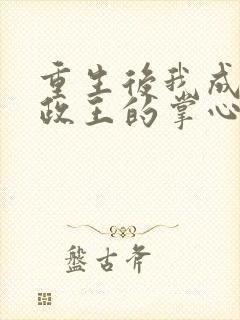 重生後我成
政王的掌心
盤古斧